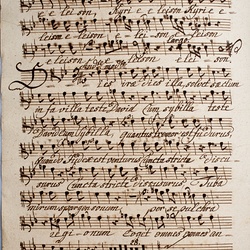 e lei son Kyri e e Kyrie e
leison e leison e lei son
e leison e lei son
Largo
Dies irae dies illa solvet saeclum
in favilla teste David cum sybilla teste
David cum Sybilla quantus tremor est futurus
quando judex est venturus cuncta stricte discu
surus cuncta stricte discussurus Tuba
mirum spargens sonum per sepulchra
regi onum coget omnes coget omnes